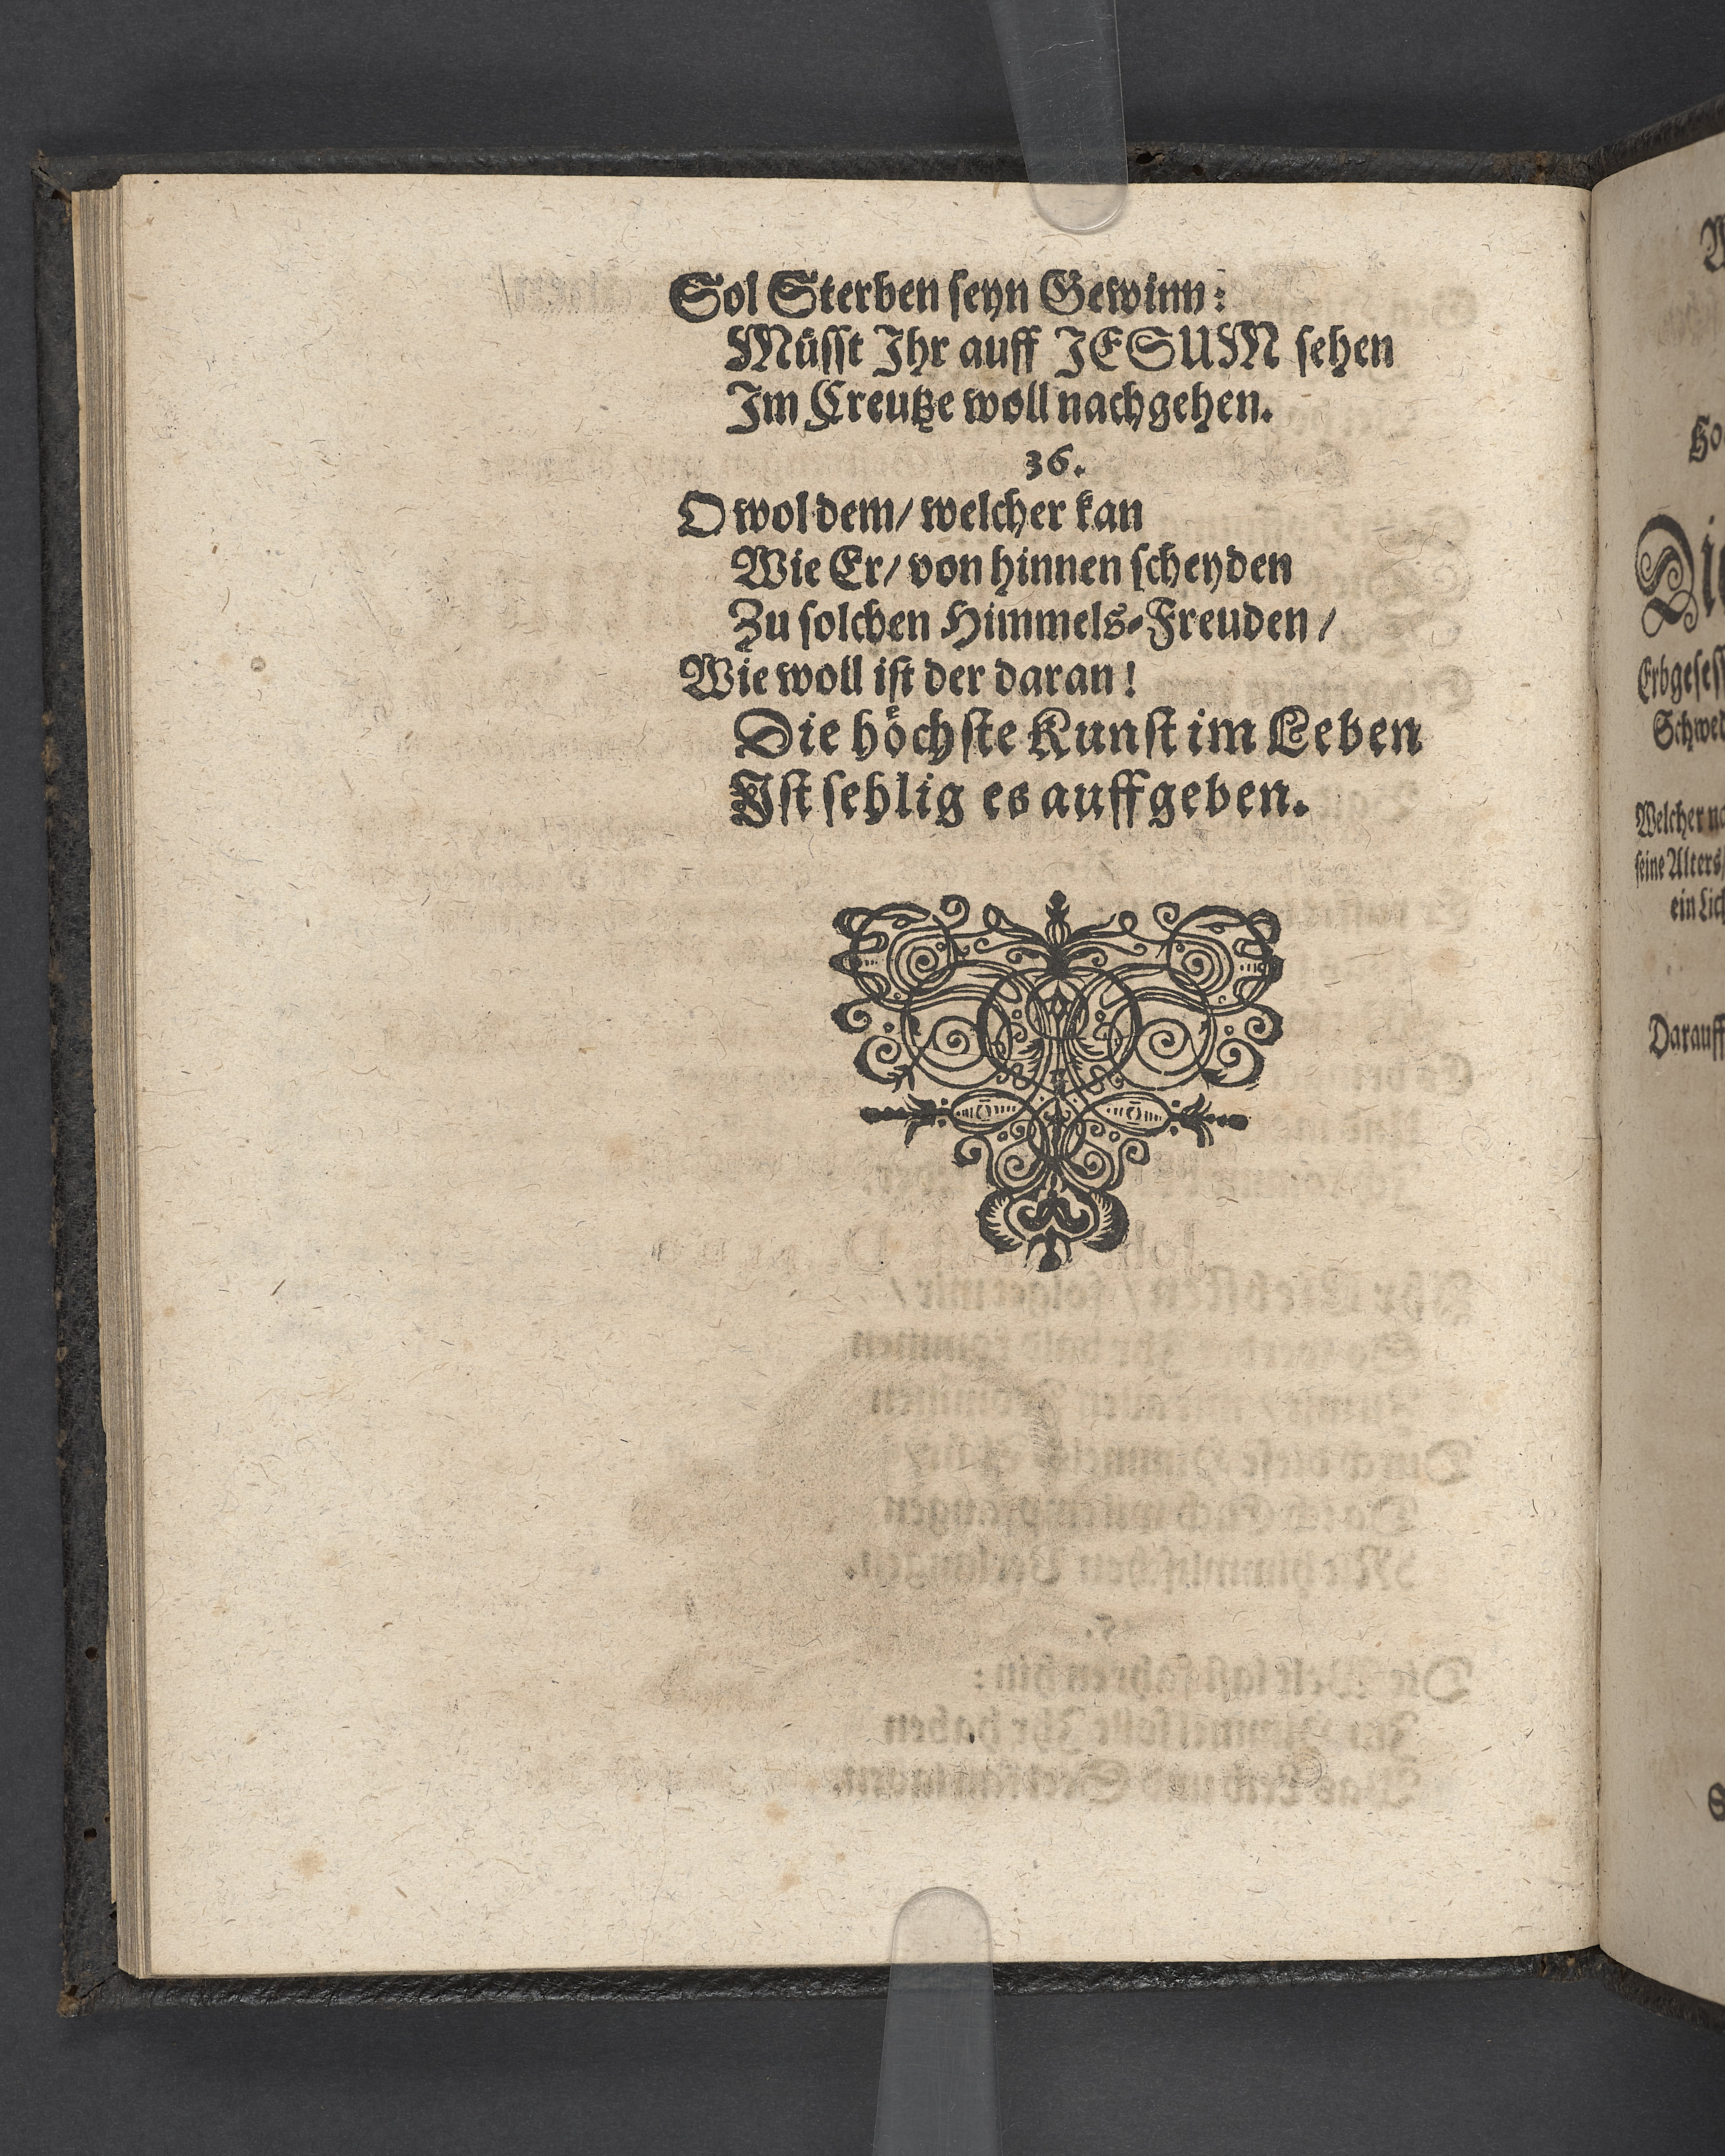 Sol Sterben seyn Gewinn:
Müsst Ihr auff JESUM sehen
Im Creutze woll nachgehen.
36.
O wol dem/ welcher kan
Wie Er/ von hinnen scheyden
Zu solchen Himmels-Freuden/
Wie woll ist der daran!
Die höchste Kunst im Leben
Ist sehlig es auffgeben.
Erbgesess
Schwed
Welcher na
seine Alters/
ein Lich
Darauff